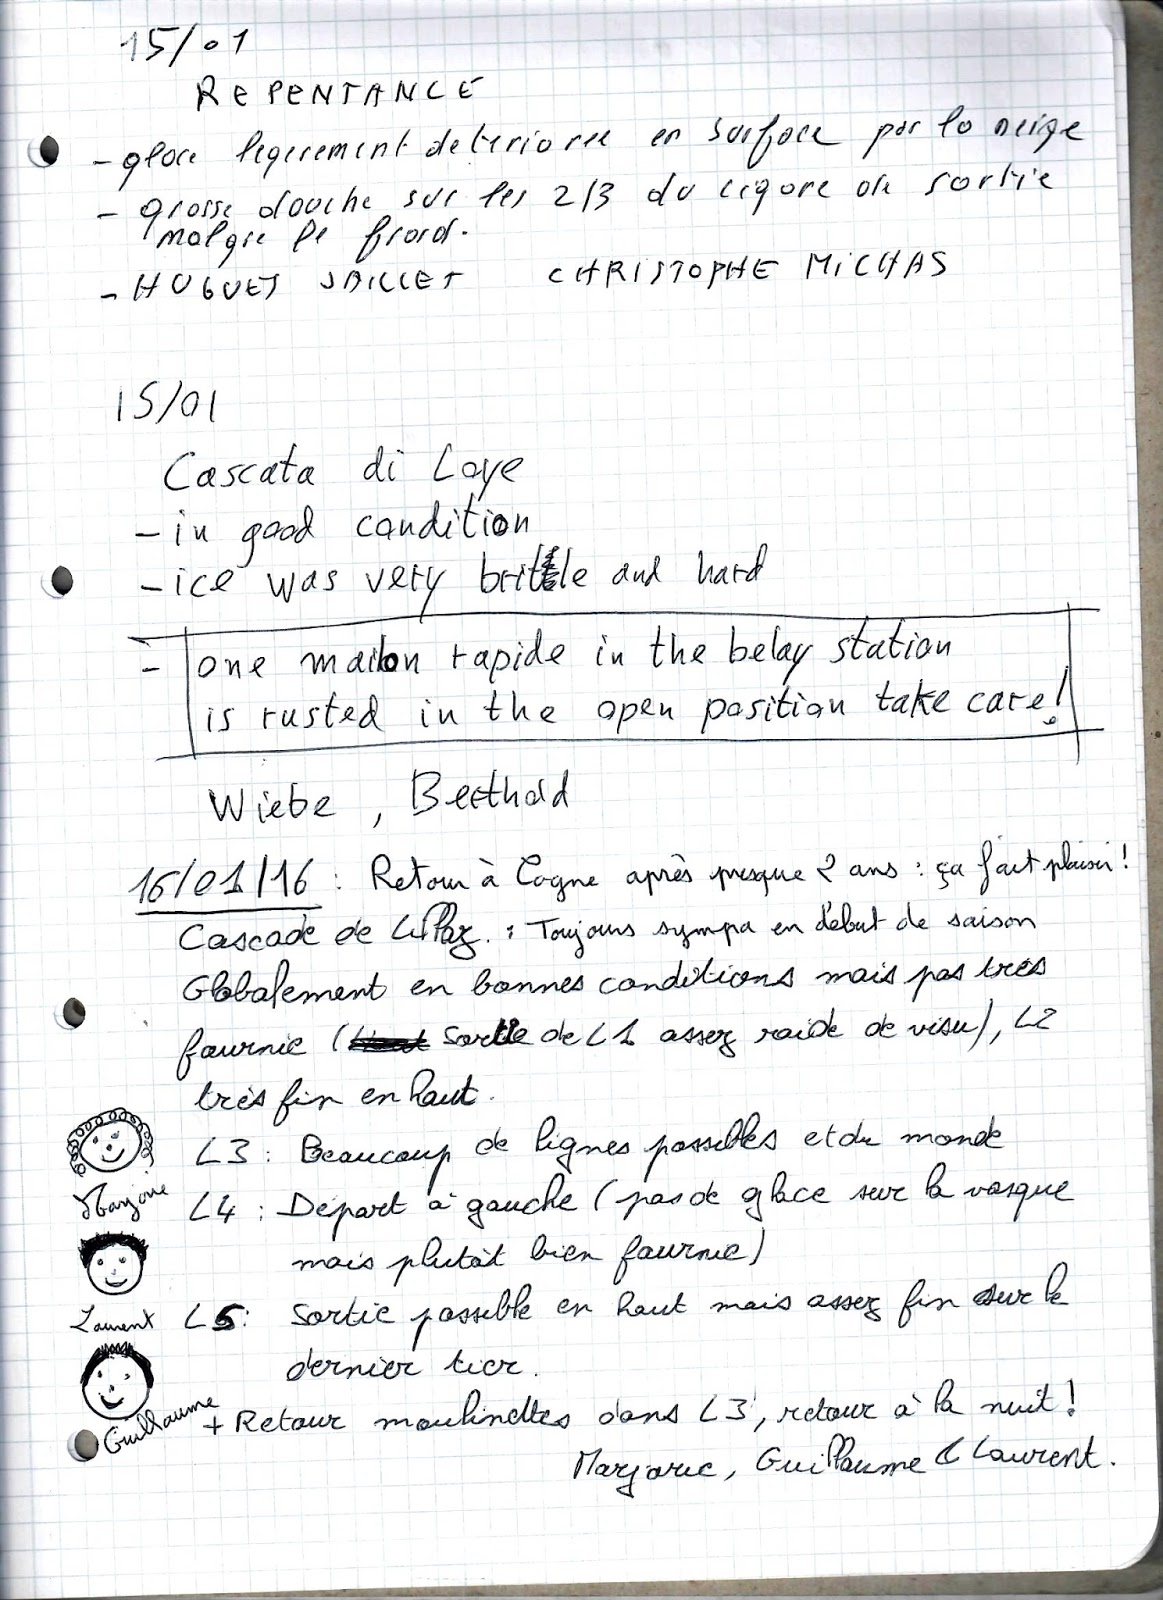 15/01
REPENTANCE
- glace legerement deterioree en surface par la neige
- grosse douche sur les 2/3 du cigare de sortie
malgre le froid.
- HUGUES JAILLET CHRISTOPHE MICHAS
15/01
Cascata di Loye
- in good condition
- ice was very brittle and hard
- one mailon rapide in the belay station
is rusted in the open position take care!
Wiebe, Berthold
16/01/16 : Retour à Cogne après presque 2 ans : ça fait plaisir !
Cascade de Lillaz. : Toujours sympa en début de saison
Globalement en bonnes conditions mais pas très
fournie (sortie de L1 assez raide de visu), L2
très fin en haut.
L3 : Beaucoup de lignes possibles et du monde
Marjorie
L4 : Départ à gauche (pas de glace sur la vasque
mais plutôt bien fournie)
Laurent
L5 : Sortie possible en haut mais assez fin sur le
dernier tier.
Guillaume
+ Retour moulinettes dans L3, retour à la nuit !
Marjorie, Guillaume & Laurent.